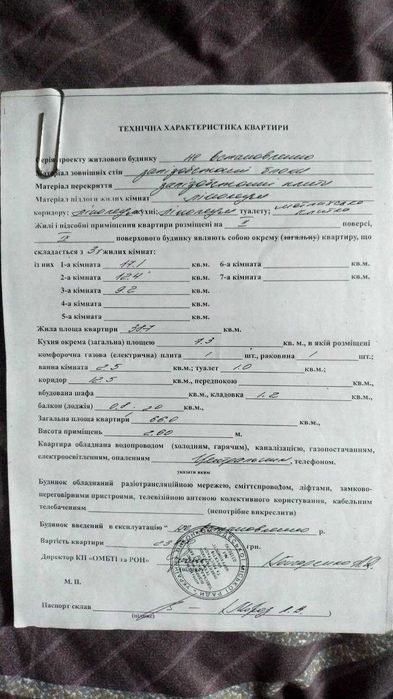 ТЕХНІЧНА ХАРАКТЕРИСТИКА КВАРТИРИ
Серія проекту житлового будинку не встановлено
Матеріал зовнішніх стін залізобетонні блоки
Матеріал перекриття залізобетонні плити
Матеріал підлоги жилих кімнат лінолеум
коридору; лінолеум кухні; лінолеум туалету; метлахська плитка
Жилі і підсобні приміщення квартири розміщені на поверсі,
поверхового будинку являють собою окрему (загальну) квартиру, що
складається з 3х жилих кімнат:
із них 1-а кімната 17.1 кв.м. 6-а кімната кв.м.
2-а кімната 12.4 кв.м. 7-а кімната кв.м.
3-а кімната 9.2 кв.м.
4-а кімната кв.м.
5-а кімната кв.м.
Жила площа квартири 38.7 кв.м.
Кухня окрема (загальна) площею 7.3 кв. м., в якій розміщені
комфорочна газова (електрична) плита 1 шт., раковина 1 шт.;
ванна кімната 2.5 кв.м.; туалет 1.0 кв.м.;
коридор 12.5 кв.м., передпокою кв.м.,
вбудована шафа кв.м., кладовка 1.2 кв.м.,
балкон (лоджія) 0.8 2.0 кв.м.
Загальна площа квартири 66.0 кв.м.
Висота приміщень м.
Квартира обладнана водопроводом (холодним, гарячим), каналізацією, газопостачанням,
електроосвітленням, опаленням Центральним, телефоном.
указати яким
Будинок обладнаний радіотрансляційною мережею, сміттєпроводом, ліфтами, замково-
переговорними пристроями, телевізійною антеною колективного користування, кабельним
телебаченням (непотрібне викреслити)
Будинок введений в експлуатацію " не встановлено р.
Вартість квартири грн.
Директор КП «ОМБТІ та РОН»
М. П.
Паспорт склав
(підпис)